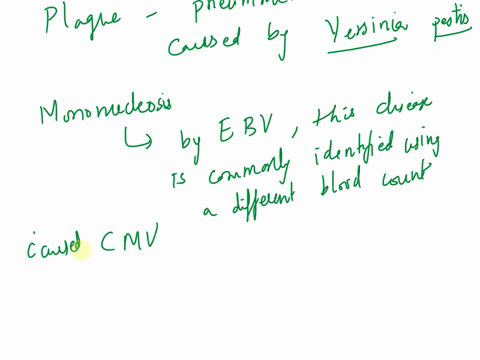 Plague -
caused by Yersinia pestis
Mononucleosis
↳ by EBV, this disease
is commonly identified using
a different blood count
caused CMV